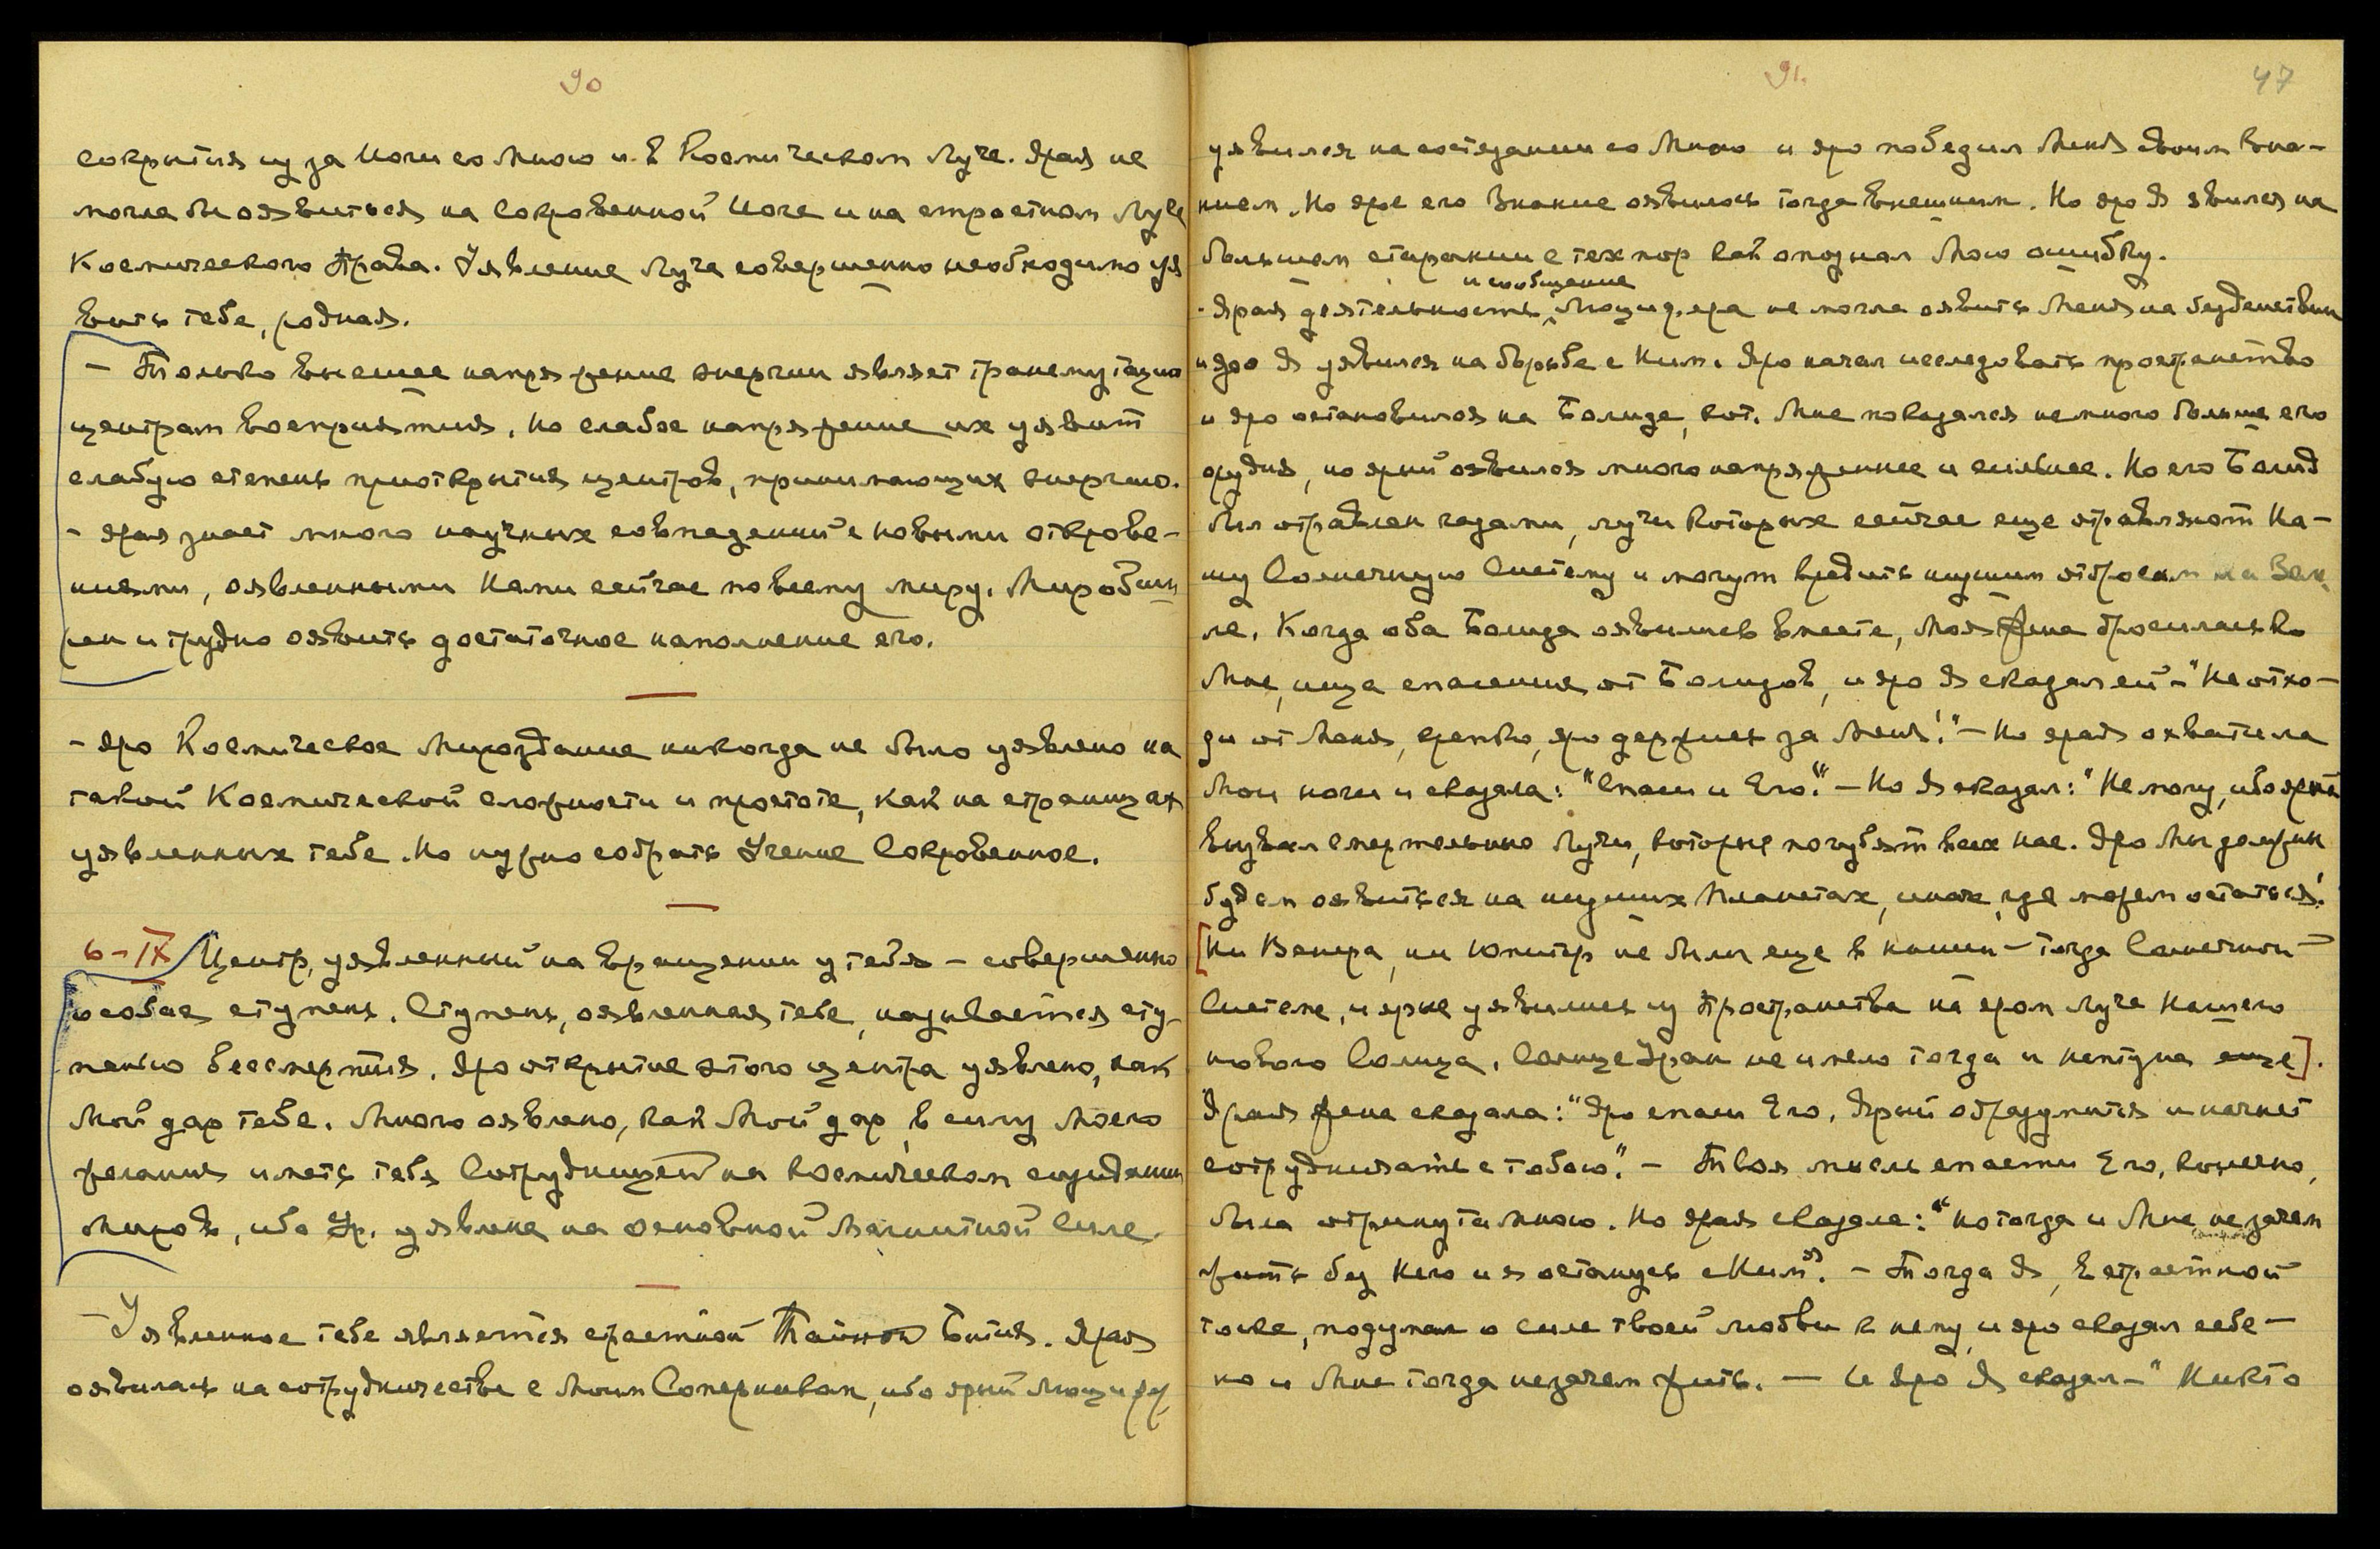 90
сокрытия из за Иоги со Мною и в Космическом Луче. Ярая не
могла бы оявиться на Сокровенной Иоге и на страстном Луче
Космического Права. Уявление Луча совершенно необходимо уя
вить тебе, родная.
— Только высшее напряжение энергии являет трансмутацию
центрам восприятия, но слабое напряжение их уявит
слабую степень приоткрытия центров, принимающих энергию.
- Ярая знает много научных совпадений с новыми открове-
ниями, оявленными Нами сейчас по всему миру. Мир обши
рен и трудно оявить достаточное наполнение его.
- Яро Космическое Мироздание никогда не было уявлено на
такой Космической сложности и простоте, как на страницах
уявленных тебе. Но нужно собрать Учение Сокровенное.
6-IX Центр, уявленный на вращении у тебя - совершенно
особая ступень. Ступень, оявленная тебе, называется сту-
пенью бессмертия. Яро открытие этого центра уявлено, как
Мой дар тебе. Много оявлено, как Мой дар, в силу Моего
желания иметь тебя Сотрудницей на космическом созидании
Миров, ибо Ур. уявлена на основной Магнитной Силе.
- Уявленное тебе является страстной Тайной Бытия. Ярая
оявилась на сотрудничестве с Моим Соперником, ибо ярый Люцифер
91. 47
уявился на состязании со Мною и яро победил Меня своим Зна-
нием. Но ярое его Знание оявилось тогда внешним. Но яро Я явился на
большем старании с тех пор как опознал Мою ошибку.
и сообщение
- Ярая деятельность Люцифера не могла оявить Меня на бездействии
и яро Я уявился на борьбе с Ним. Яро начал исследовать пространство
и яро остановился на Болиде, кот. Мне показался немного больше его
орудия, но ярый оявился много напряженнее и сильнее. Но его Болид
был отравлен газами, лучи которых сейчас еще отравляют На-
шу Солнечную Систему и могут вредить низшим отбросам на Зем
ле. Когда оба Болида оявились вместе, Моя Жена бросилась ко
Мне, ища спасения от Болидов, и яро Я сказал ей - "Не отхо-
ди от Меня, крепко, яро держись за Меня!" - Но ярая охватила
Мои ноги и сказала: "Спаси и Его". - Но Я сказал: "Не могу, ибо ярый
вызвал смертельно Лучи, которые погубят всех нас. Яро Мы должны
будем оявиться на низших Планетах, иначе, где можем остаться!
[Ни Венера, ни Юпитер не были еще в нашей - тогда Солнечной -
Системе, и яркие уявились из Пространства на яром Луче Нашего
нового Солнца. Солнце Уран не имело тогда и Нептуна еще].
Ярая Жена сказала: "Яро спаси Его. Ярый образумится и начнет
сотрудничать с тобою". - Твоя мысль спасти Его, конечно,
была отринута Мною. Но ярая сказала: "Но тогда и Мне незачем
жить без Него и я останусь с Ним". - Тогда Я, в страстной
тоске, подумал о силе твоей любви к нему, и яро сказал себе -
но и Мне тогда незачем жить. - И яро Я сказал - "Никто